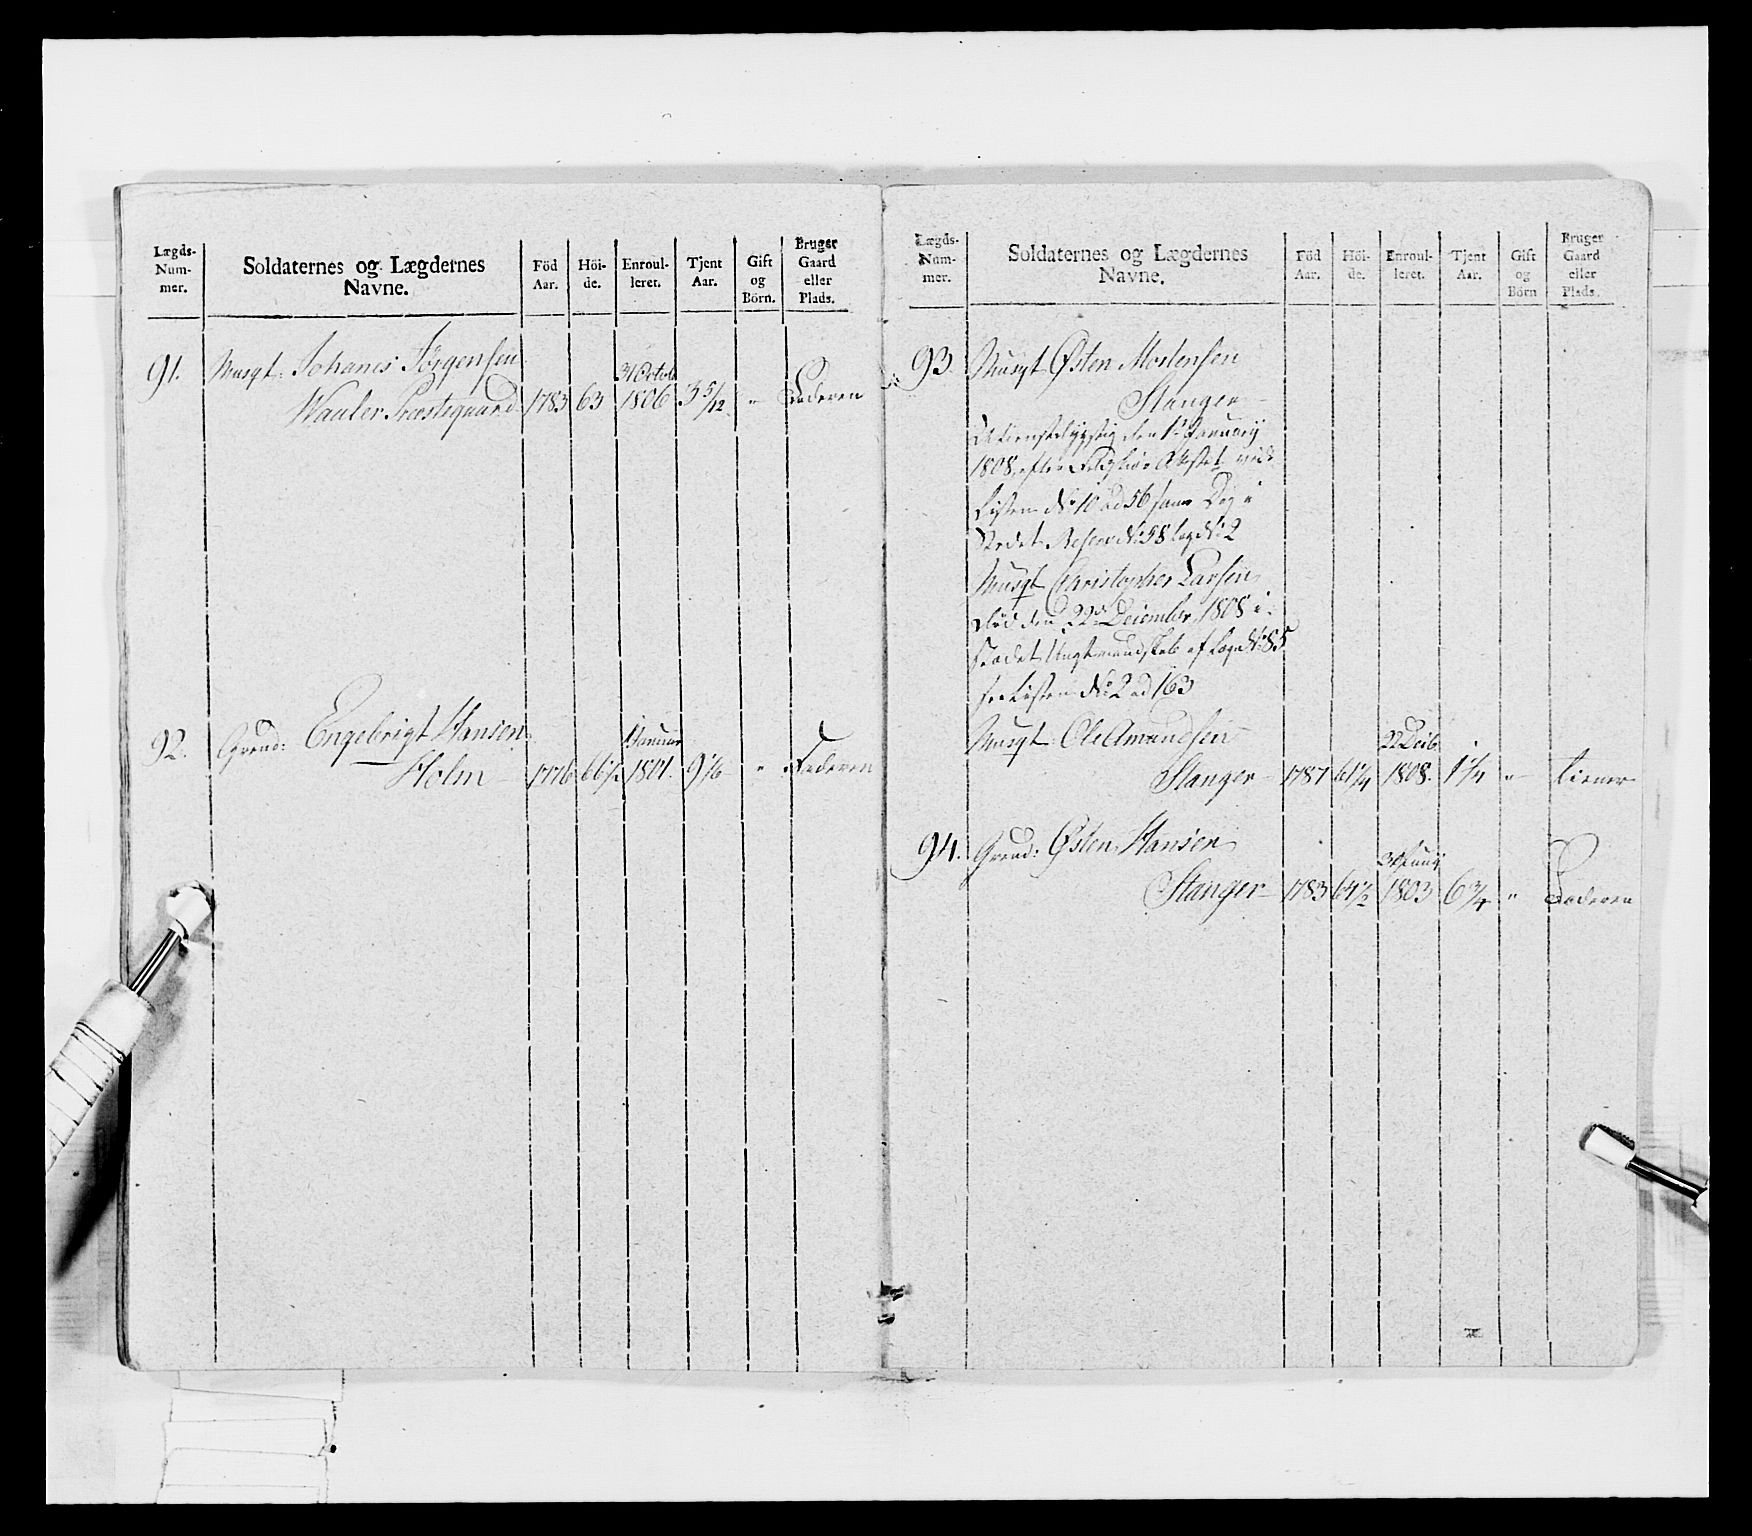 Lægds-
Num-
mer.
Soldaternes og Lægdernes
Navne.
Föd
Aar.
Höi-
de.
Enroul-
leret.
Tjent
Aar.
Gift
og
Börn.
Bruger
Gaard
eller
Plads.
91. Musqt: Johanes Jörgensen
31 Octob
Wauler Præstegaard 1783 63 1806 3 5/12 " Faderen
92. Grend: Engebrigt Hansen
1 Januar
Holm 1776 66 1/2 1801. 9 1/6 " Faderen
Lægds-
Num-
mer.
Soldaternes og Lægdernes
Navne.
Föd
Aar.
Höi-
de.
Enroul-
leret.
Tjent
Aar.
Gift
og
Börn
Bruger
Gaard
eller
Plads.
93. Musqt Østen Mortensen
Stanger
den 1ste January
1808, efter
Listen No: 10 ad 56 samme Dag i
Stedet Reserv No: 58 læg No: 2
Musqt Christopher Larsen
död den 22de Decembr, 1808 i
Stedet Ungtmandskab af Lægd No: 85
see Listen No: 2 ad 163
Musqt: Ole Amundsen
22 Decb
Stanger 1787 61 1/4 1808. 1 1/4 " tiener
94. Grend: Østen Hansen
Stanger 1783 64 1/2 1803 6 3/4 " Faderen